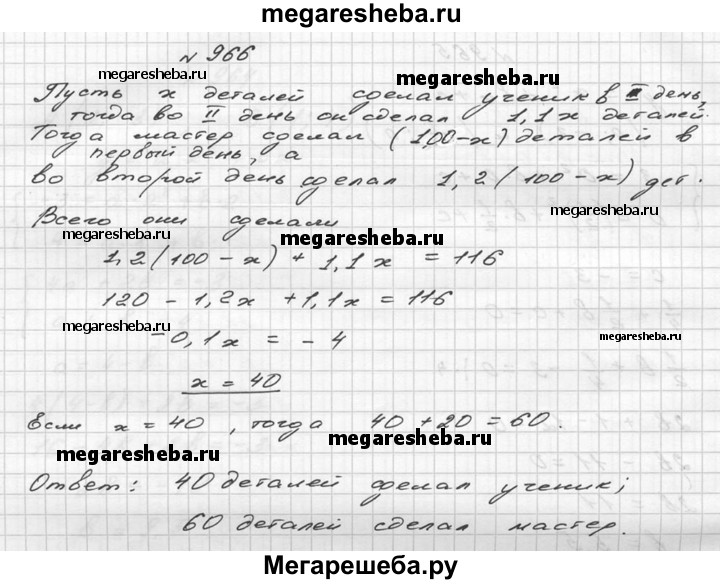 megaresheba.ru
№ 966
megaresheba.ru
Пусть x деталей сделал ученик в I день,
тогда во II день он сделал 1,1x деталей.
Тогда мастер сделал (100-x) деталей в
первый день, а
во второй день сделал 1,2(100-x) дет.
megaresheba.ru
Всего они сделали
megaresheba.ru
megaresheba.ru
1,2(100-x) + 1,1x = 116
120 - 1,2x + 1,1x = 116
megaresheba.ru
-0,1x = -4
megaresheba.ru
x = 40
Если x = 40, тогда 40 + 20 = 60.
megaresheba.ru
megaresheba.ru
Ответ: 40 деталей сделал ученик;
60 деталей сделал мастер.
Мегарешеба.ру